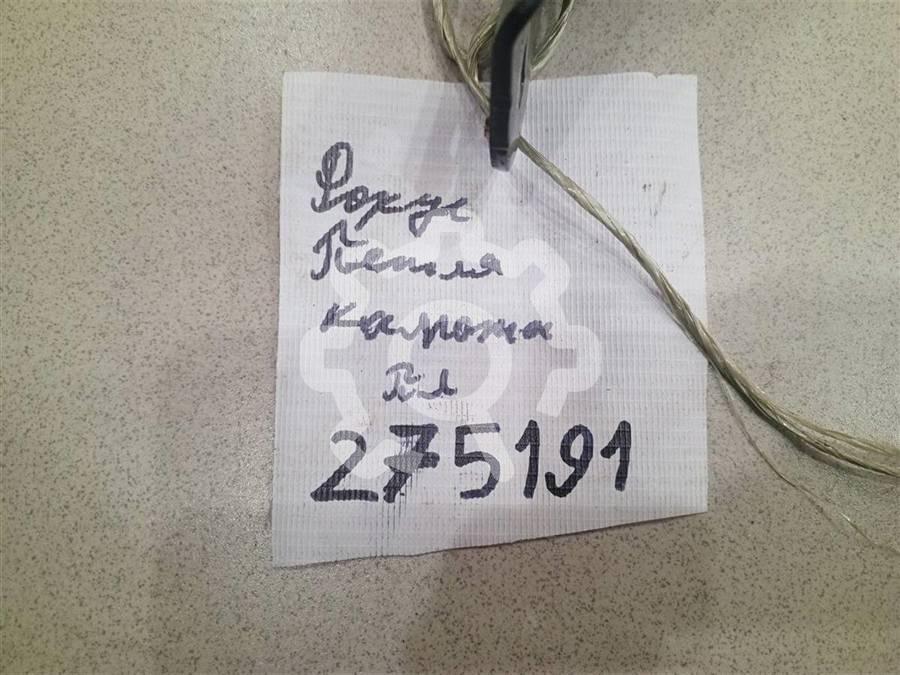 Фокус
Петля
капота
Пл
275191